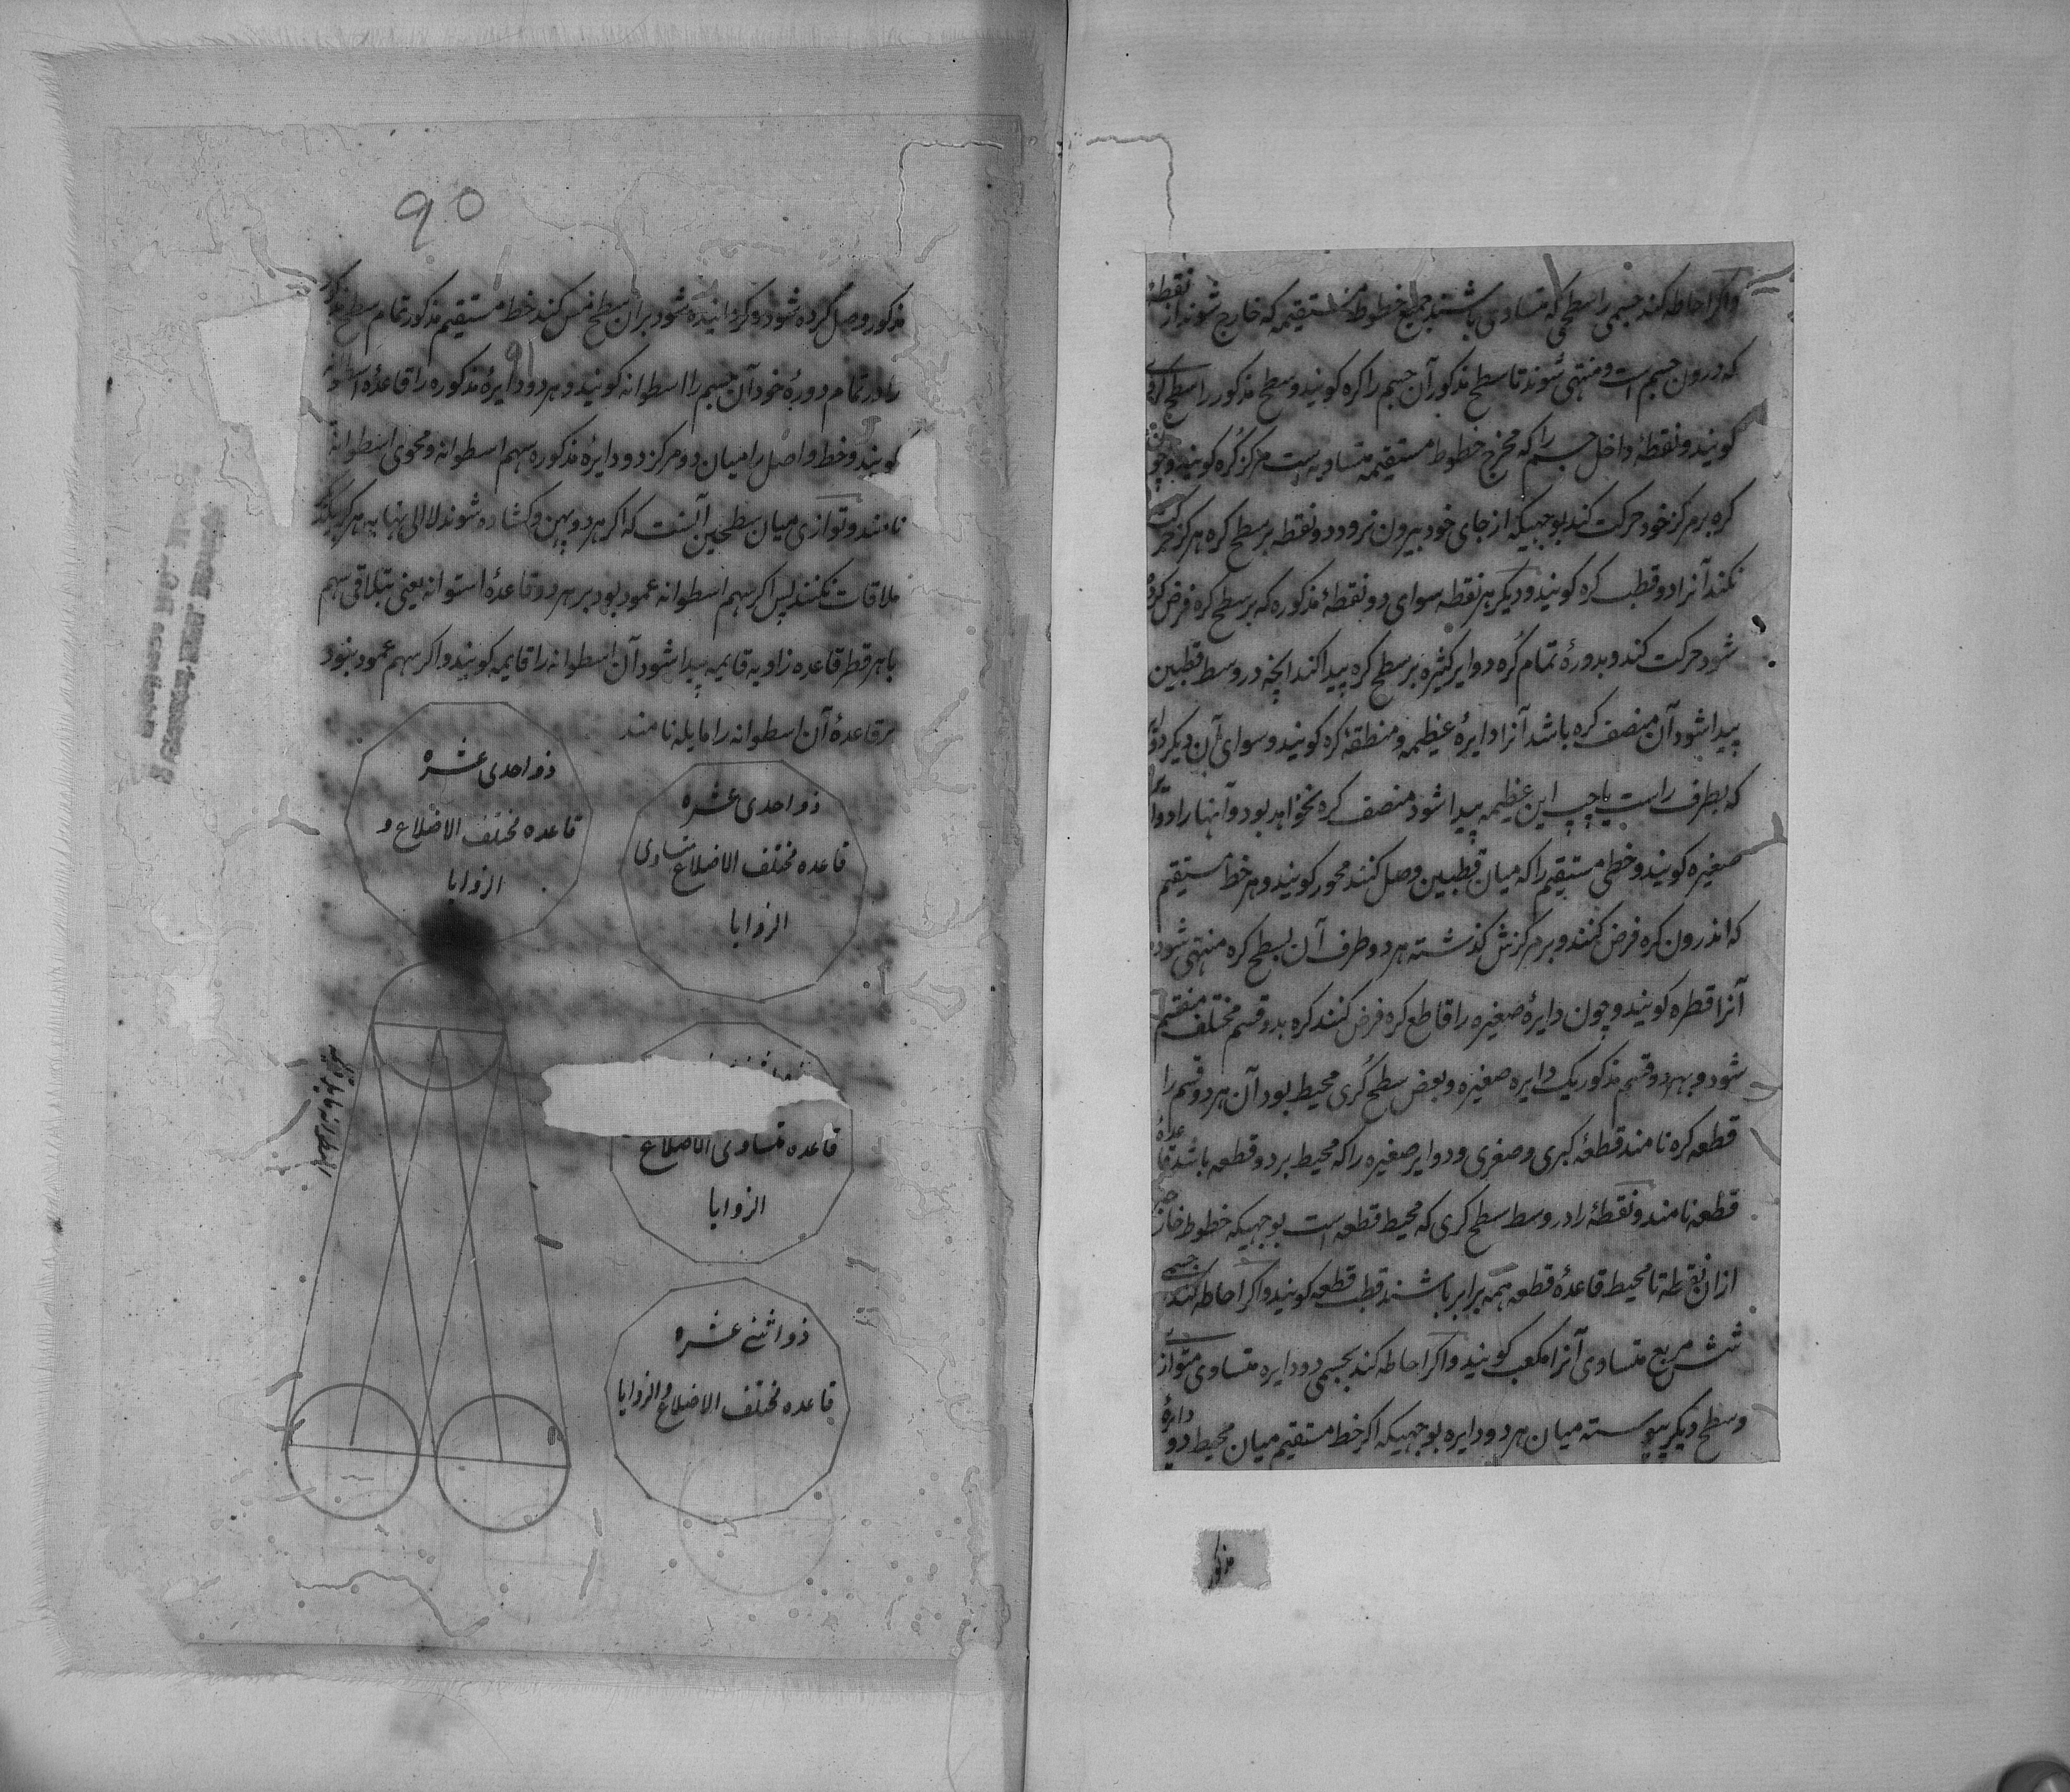 واکر احاطه کند جسمی را سطحی که متساوی باشند جمیع خطوط مستقیمه که خارج شوند از نقطهٔ
که درون جسم است و منتهی شوند تا سطح مذکور آن جسم را کره کویند و سطح مذکور را سطح کری
کویند و نقطهٔ داخل جسم را که مخرج خطوط مستقیمه متساویه است مرکز کُره کویند و چون
کره بر مرکز خود حرکت کند بوجهیکه از جای خود بیرون نرود دو نقطه بر سطح کره هرکز حرکت
نکند آنرا دو قطب کره کویند و دیکر هر نقطه سوای دو نقطهٔ مذکوره که بر سطح کره فرض کرده
شود حرکت کند و بدورهٔ تمام کُره دوایر کثیره بر سطح کره پیدا کند انچه در وسط قطبین
پیدا شود آن منصف کره باشد آنرا دایرهٔ عظیمه و منطقهٔ کره کویند و سوای آن دیکر دوایر
که بطرف راست یا چپ این عظیمه پیدا شود منصف کره نخواهد بود و آنها را دوایر
صغیره کویند و خطی مستقیم را که میان قطبین وصل کنند محور کویند و هر خط مستقیم
که اندرون کره فرض کنند و بر مرکزش کذشته هر دو طرف آن بسطح کره منتهی شود
آنرا قطره کویند و چون دایرهٔ صغیره را قاطع کره فرض کنند کره بدو قسم مختلف منقسم
شود و بهر دو قسم مذکور یک دایره صغیره و بعض سطح کُری محیط بود آن هر دو قسم را
قطعه کره نامند قطعهٔ کبری و صغری و دوایر صغیره را که محیط بر دو قطعه باشد قاعدهٔ
قطعه نامند و نقطهٔ را در وسط سطح کری که محیط قطعه است بوجهیکه خطوط خارجه
از ان نقطه تا محیط قاعدهٔ قطعه همه برابر باشند قطب قطعه کویند و اکر احاطه کند جسمی
شش مربع متساوی آنرا مکعب کویند و اکر احاطه کند بجسمی دو دایره متساوی متوازی
و سطح دیکر پیوسته میان هر دو دایره بوجهیکه اکر خط مستقیم میان محیط دو دایرهٔ
مذکور
۹۰
مذکور وصل کرده شود و کردانیده شود بران سطح مس کند خط مستقیم مذکور تمام سطح مذکور
۹۱
را در تمام دورهٔ خود آن جسم را اسطوانه کویند و هر دو دایرهٔ مذکوره را قاعدهٔ اسطوانه
کویند و خط واصل را میان دو مرکز دو دایرهٔ مذکوره سهم اسطوانه و محوی اسطوانه
نامند و توازی میان سطحین آنست که اکر هر دو پهن و کشاده شوند لا الی نهایه هرکز باهم
ملاقات نکنند پس اکر سهم اسطوانه عمود بود بر هر دو قاعدهٔ استوانه یعنی بتلاقی سهم
با هر قطر قاعده زاویه قایمه پیدا شود آن اسطوانه را قایمه کویند و اکر سهم عمود نبود
بر قاعدهٔ آن اسطوانه را مایله نامند
ذو احدی عشره
قاعده مختلف الاضلاع و
الزوایا
ذو احدی عشره
قاعده مختلف الاضلاع متساوی
الزوایا
قاعده متساوی الاضلاع
الزوایا
ذو اثنے عشره
قاعده مختلف الاضلاع و الزوایا